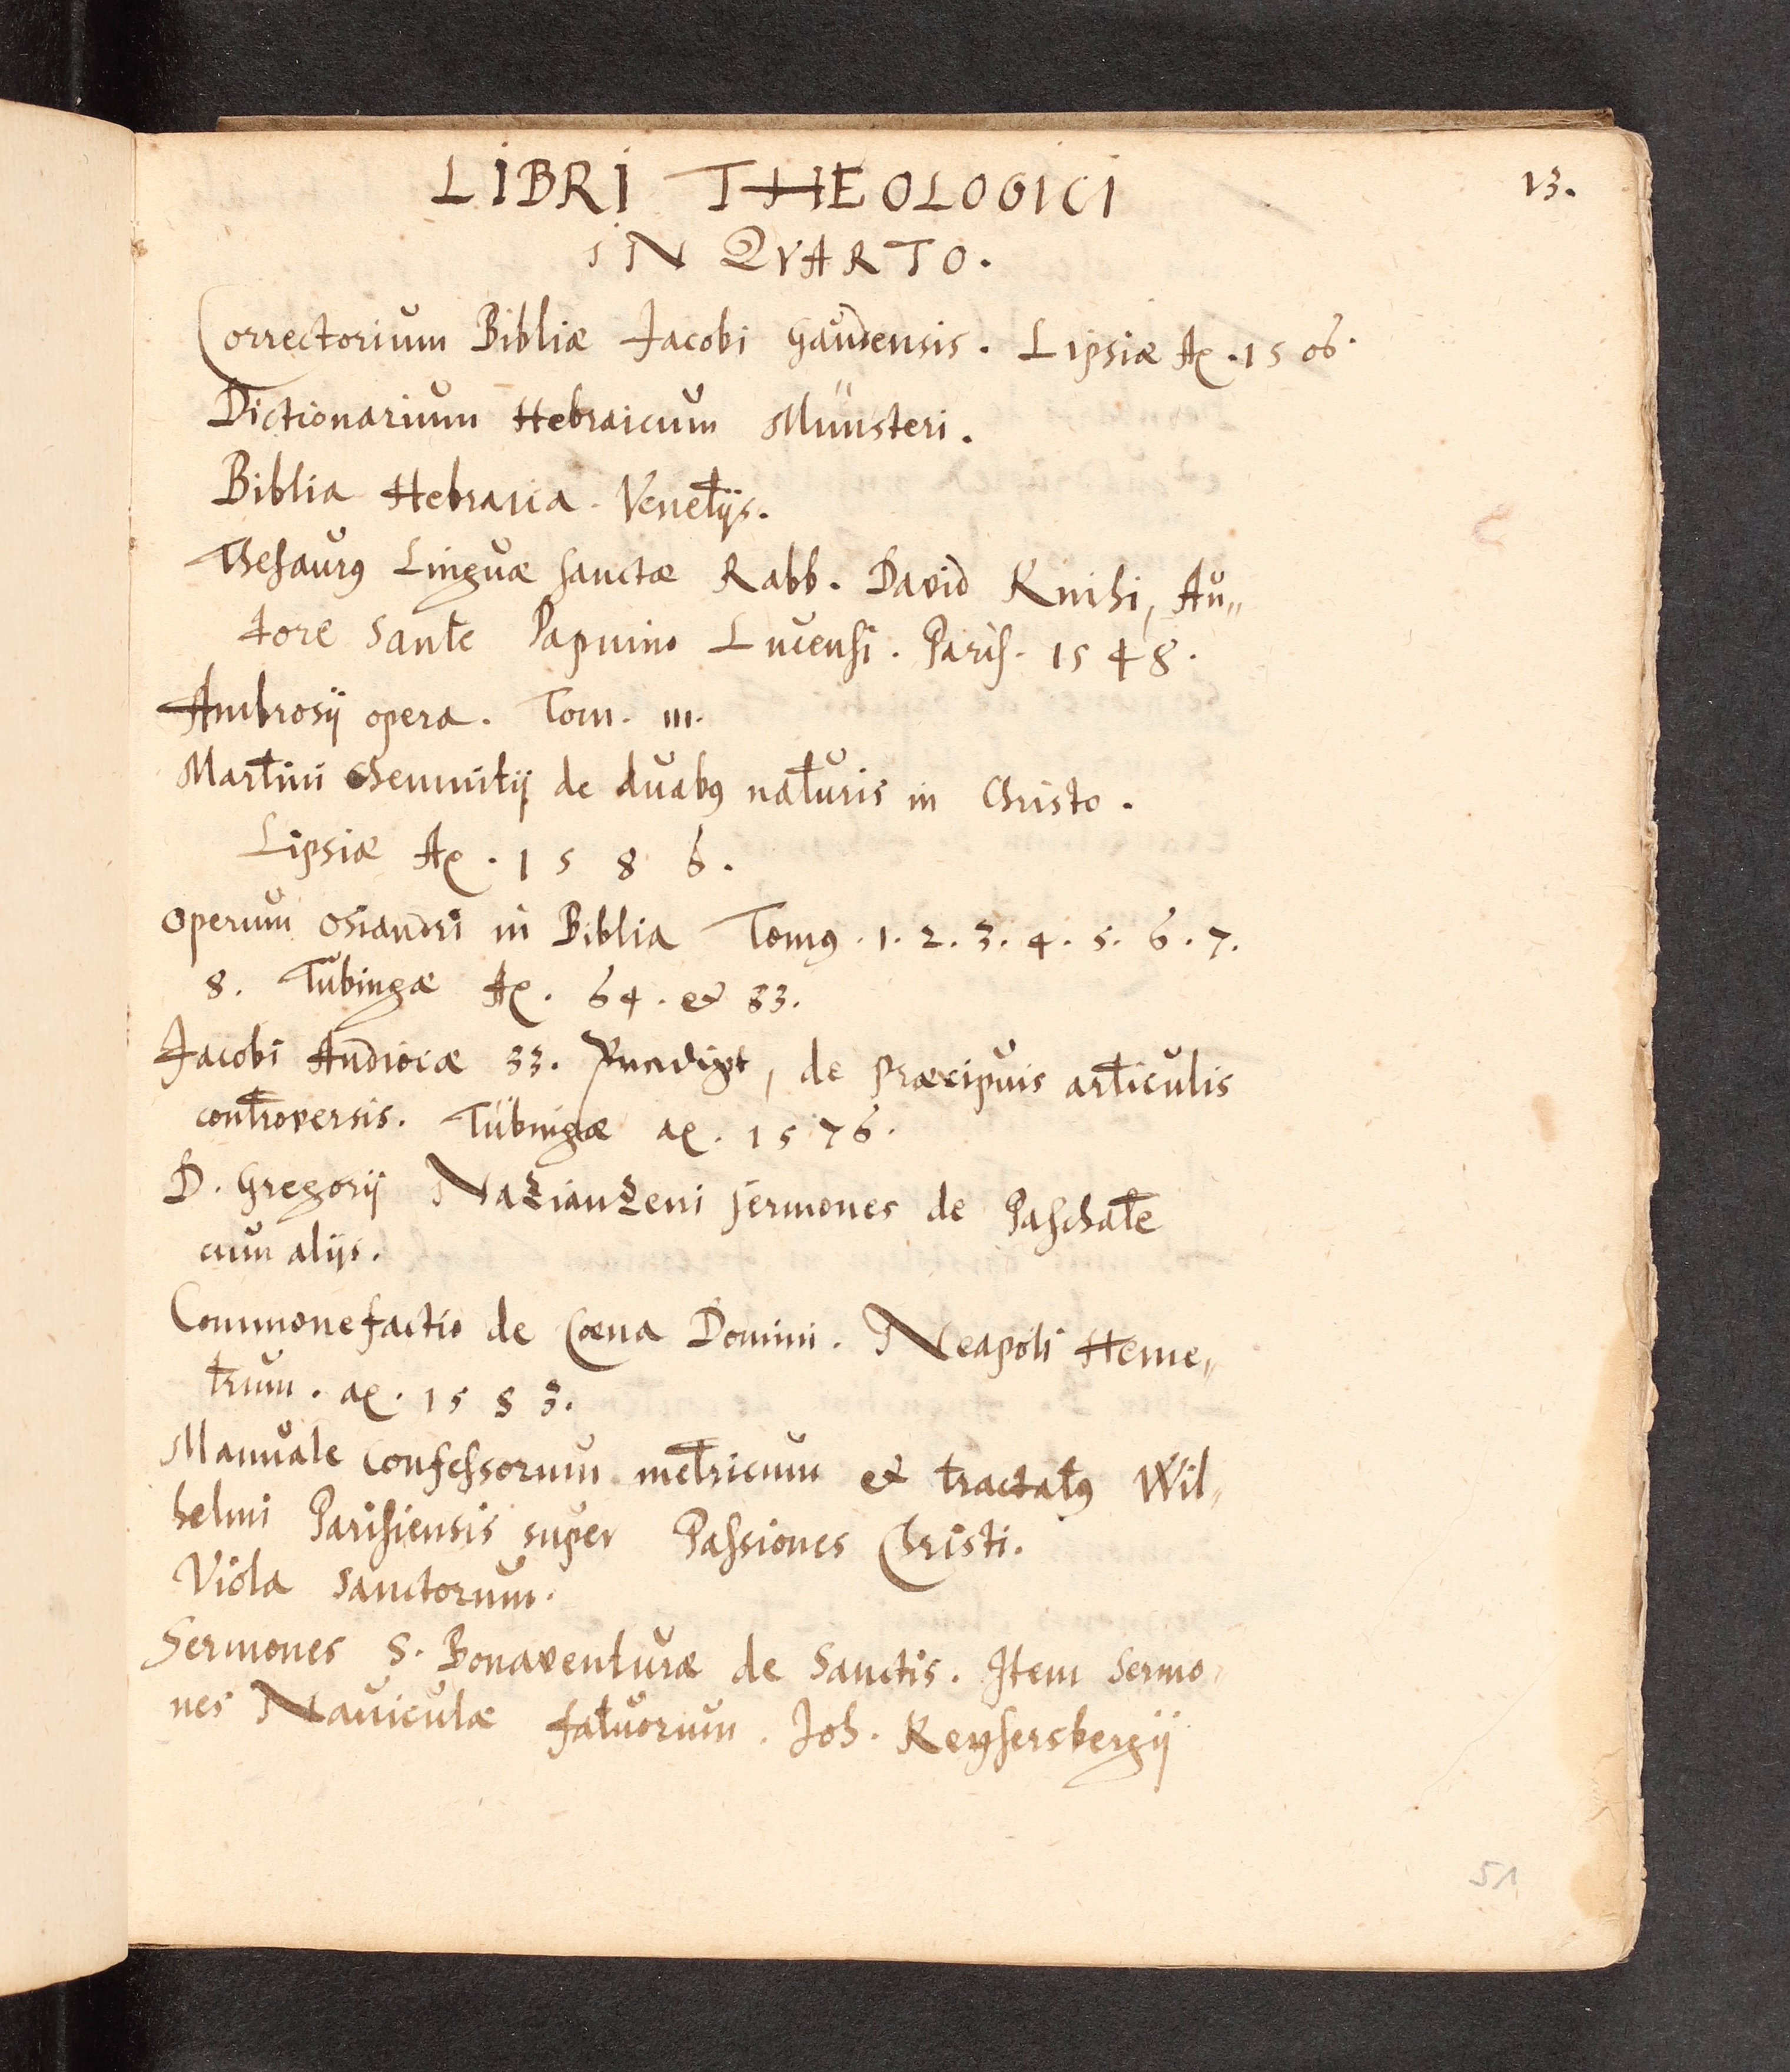 LIBRI THEOLOGICI
13.
IN QVARTO.
Correctorium Bibliæ Jacobi Gaudensis. Lipsiæ Aº. 1506.
Dictionarium Hebraicum Münsteri.
Biblia Hebraica. Venetijs.
Thesaurꝰ Linguæ sanctæ Rabb. David Kmhi, Au„
tore Sante Papnino Lucensi. Paris. 1548.
Ambrosij opera. Tom. III.
Martini Chemnitij de duabꝰ naturis in Christo.
Lipsiæ Aº. 1586.
Operum Osiandri in Biblia Tomꝰ. 1. 2. 3. 4. 5. 6. 7.
8. Tubingæ Aº. 84. et 83.
Jacobi Andreæ 33. Predigt, de præcipuis articulis
controversis. Tübingæ aº. 1576.
D. Gregorij Nazianzeni sermones de Paschate
cum alijs.
Commonefactio de Cœna Domini. Neapoli Neme„
trum. aº. 1583.
Manuale Confessorum metricum et tractatꝰ Wil„
helmi Parisiensis super Passiones Christi.
Viola Sanctorum.
Sermones S. Bonaventuræ de Sanctis. Item Sermo„
nes Naviculæ fatuorum. Joh. Keysersbergij
51